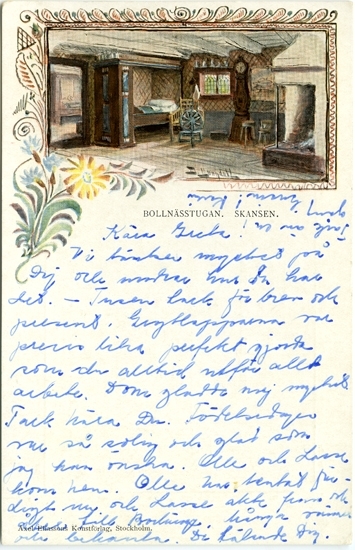 BOLLNÄSSTUGAN. SKANSEN.
Kära Greta!
Vi tänker mycket på
Dig och undrar hur Du har
det. – Tusen tack för brev och
present. Grytlapparna var
precis lika perfekt gjorda
som du alltid utför allt
arbete. Dom gladde mig mycket
Tack kära Du. Födelsedagen
var så solig och glad som
jag kan önska. Olle och Lasse
kom hem. Olle has tentat
och Lasse
Axel Eliassons Konstförlag, Stockholm.